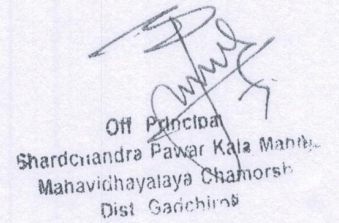 Off Principal
Shardchandra Pawar Kala
Mahavidhayalaya Chamorsh
Dist Gadchiro